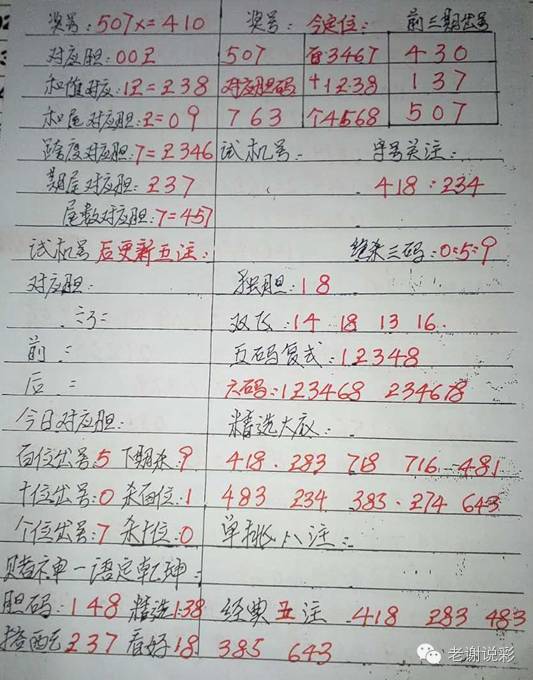 奖号:507x=410 奖号: 今定位: 前三期出号
对应胆:00Z 507 百3467 430
和值对应:12=238 对应胆码 十1238 137
和尾对应胆:2=09 763 个4568 507
跨度对应胆:7=2346 试机号: 字号关注:
期尾对应胆:237 418:234
尾数对应胆:7=457
试机号后更新五注: 绝杀三码:0:5:9
对应胆: 独胆:18
双飞:14 18 13 16
前: 五码复式:12348
后: 六码:123468 234678
今日对应胆: 精选大底:
百位出号:5 下期杀:9 418.283 718 716 481
十位出号:0 杀百位:1 483 234 383.274 643
个位出号:7 杀十位:0 单挑八注:
赌神一语定乾坤:
胆码:148 精选138 经典五注 418 283 483
搭配237 看好18 385 643
老谢说彩